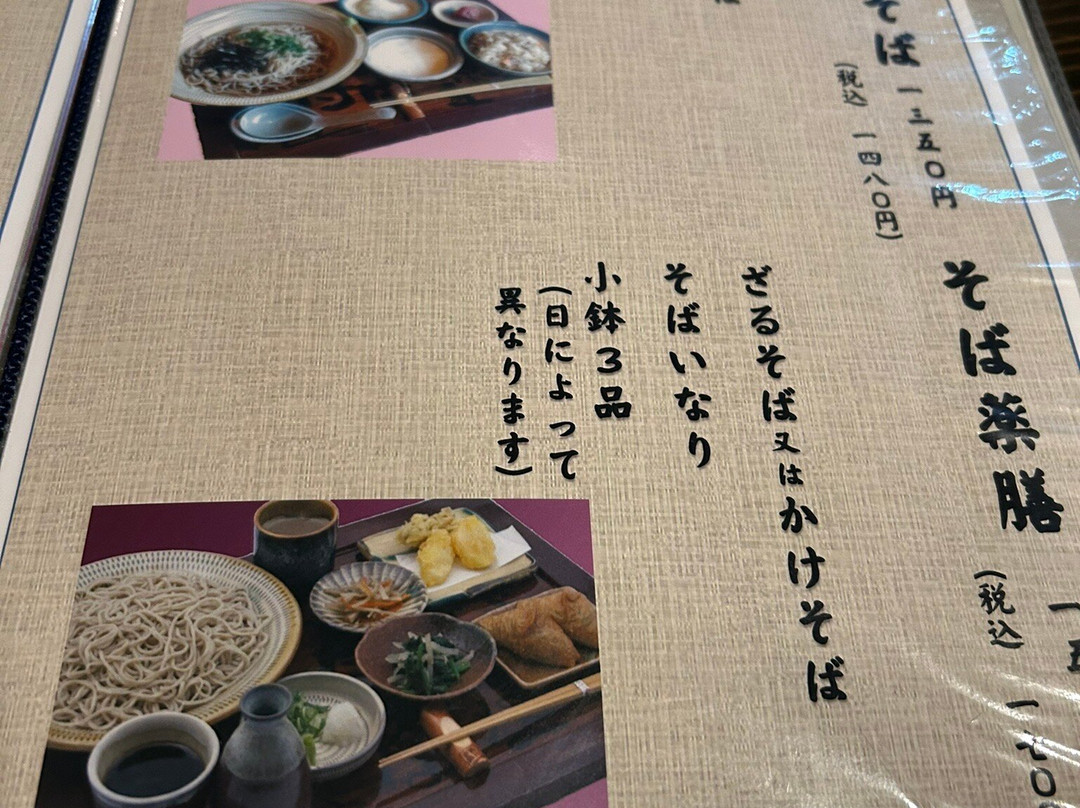 そば 一三五〇円
(税込 一四八〇円)
そば薬膳
(税込 一七〇
ざるそば又はかけそば
そばいなり
小鉢3品
(日によって
異なります)